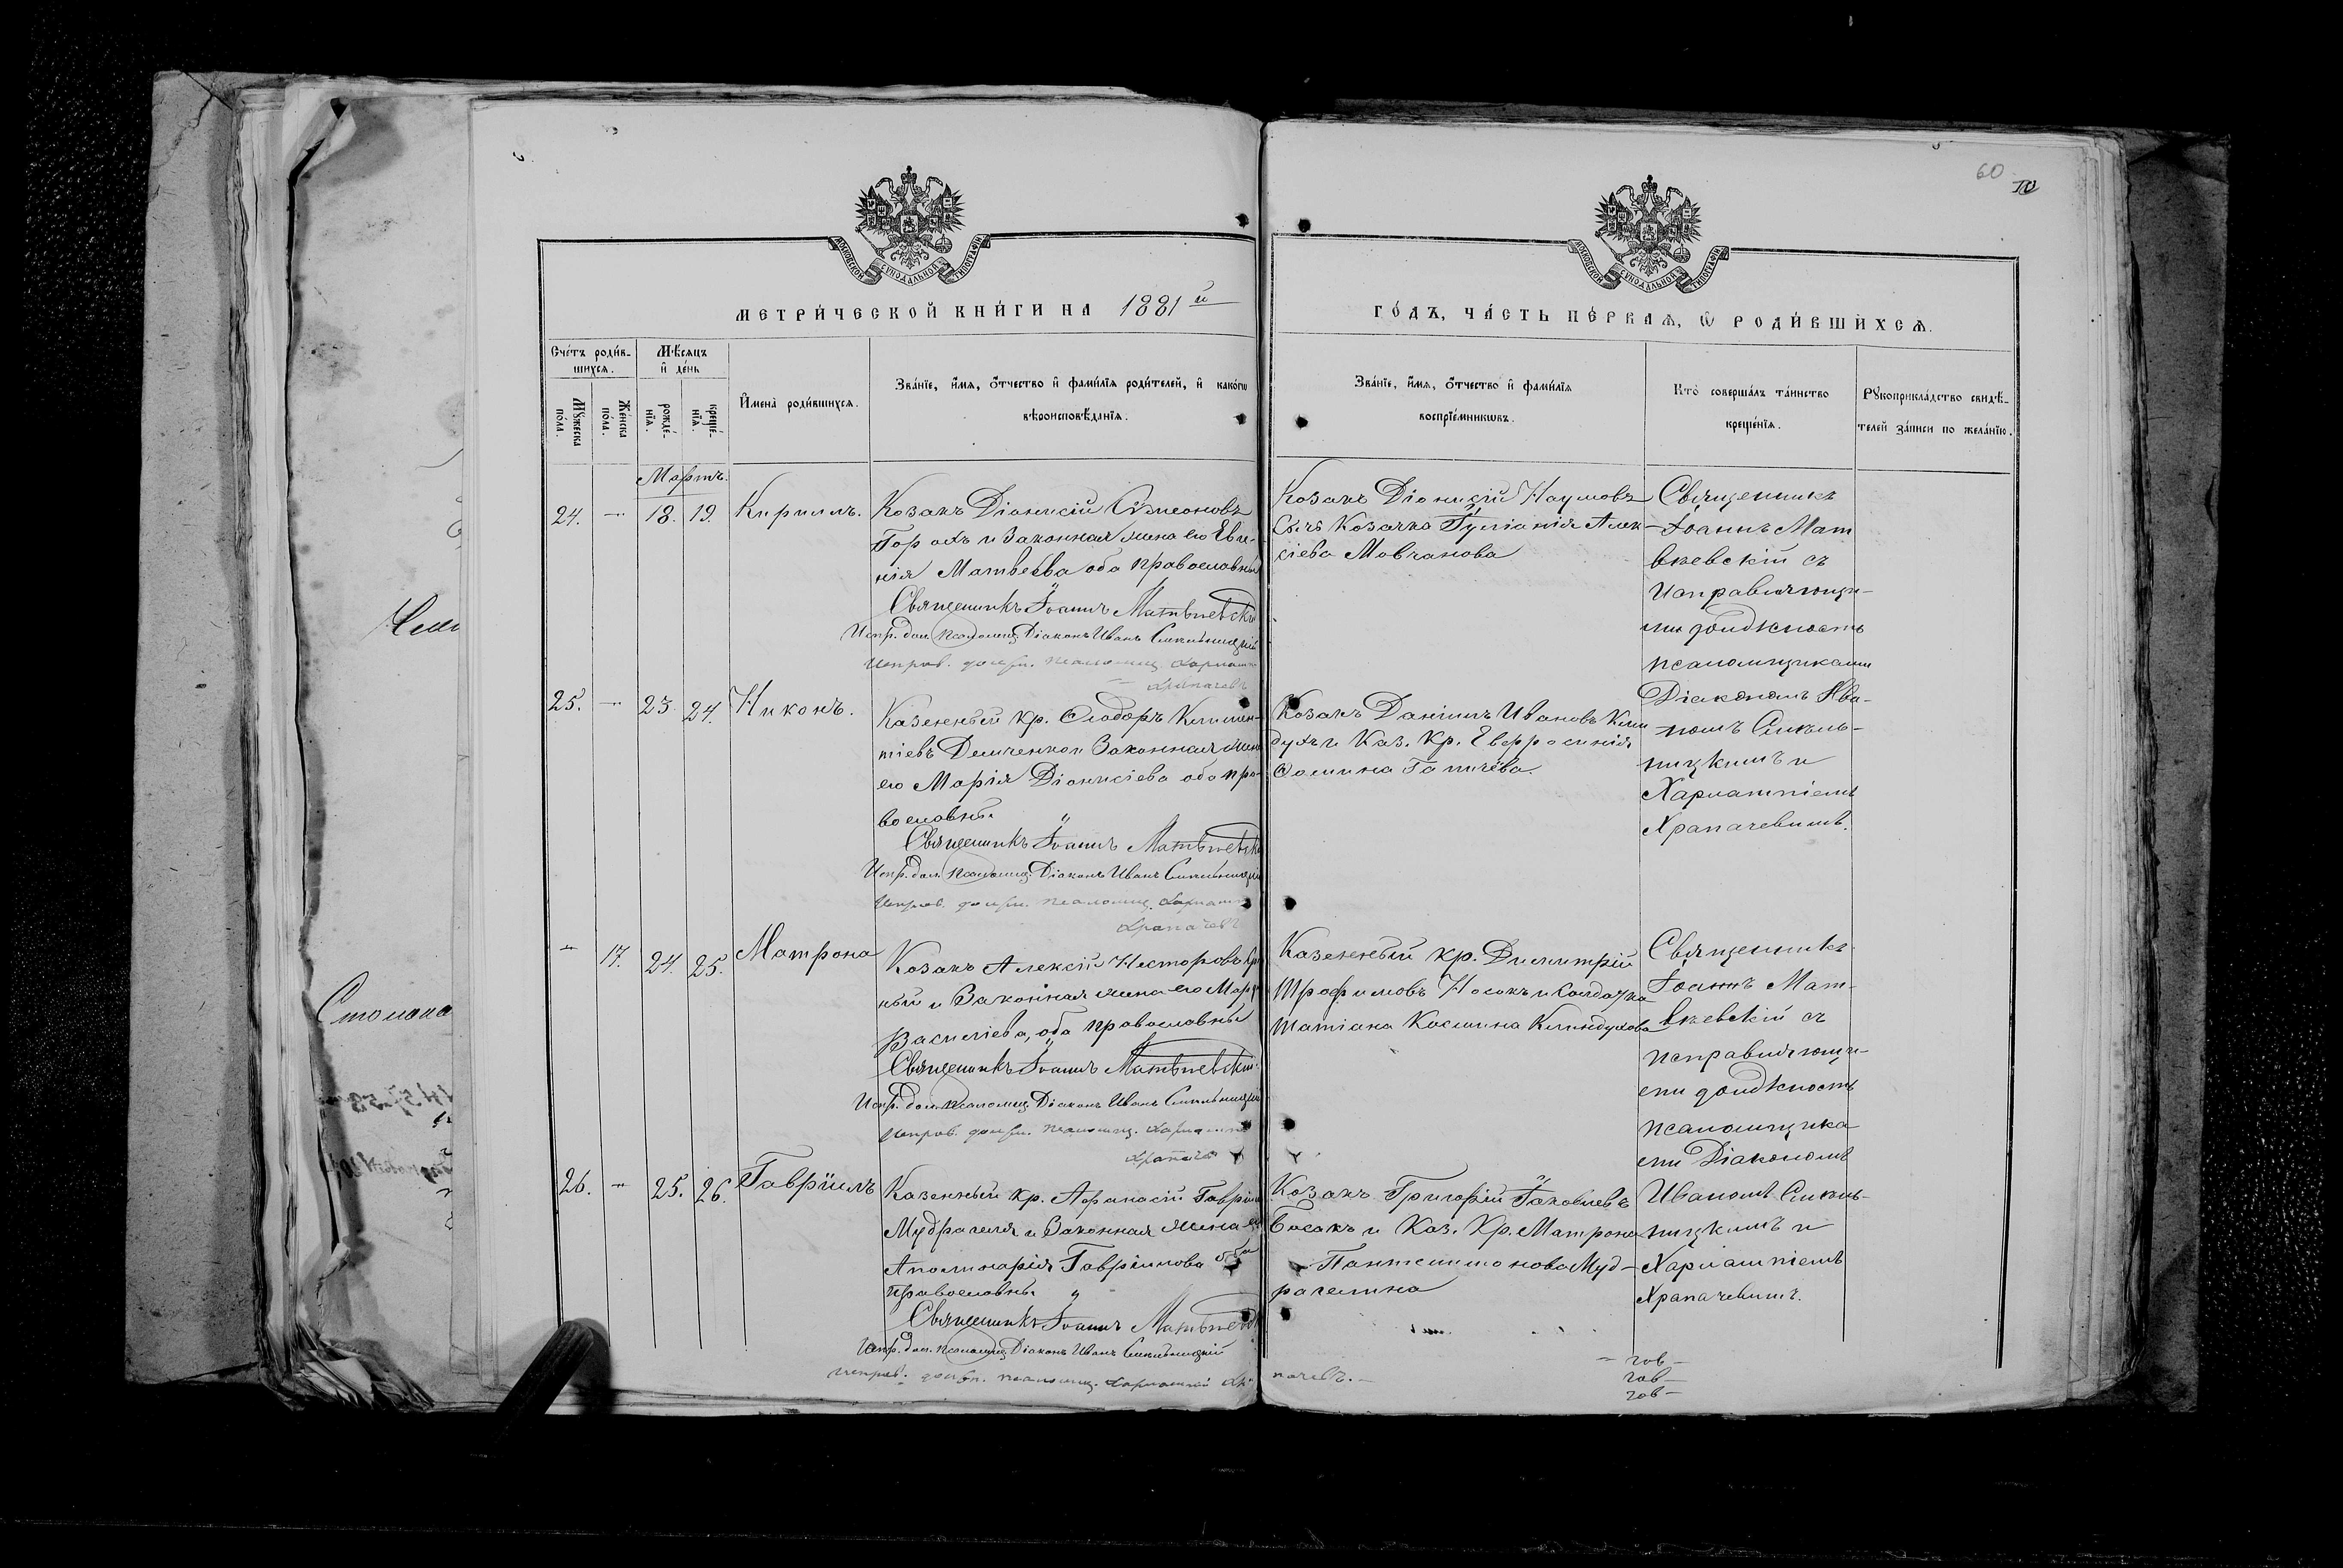 60
МОСКОВСКОЙ СУНОДАЛЬНОЙ ТИПОГРАФІИ
МОСКОВСКОЙ СУНОДАЛЬНОЙ ТИПОГРАФІИ
МЕТРИ́ЧЕСКОЙ КНИ́ГИ НА 1881 й
ГО́ДЪ, ЧА́СТЬ ПЕ́РВАѦ, Ѡ РОДИ́ВШИХСѦ.
Сче́тъ роди́в-
шихсѧ.
Мѣ́сѧцъ
и де́нь
Мꙋ́жеска по́ла.
Же́нска по́ла.
рожде́-
нїѧ.
креще́-
нїѧ.
И́мена̀ роди́вшихсѧ.
Зва́нїе, и́мѧ, о́тчество и фами́лїѧ роди́телей, и како́гѡ
вѣроисповѣ́данїѧ.
Зва́нїе, и́мѧ, о́тчество и фами́лїѧ
воспрїе́мникѡвъ.
Кто̀ соверша́лъ та́инство
креще́нїѧ.
Рꙋкоприкла́дство свидѣ́-
телей за́писи по жела́нїю.
Мартъ.
24. — 18. 19. Кириллъ.
Козакъ Діонисій Сѵмеоновъ
и Законная жена его Евге-
нія Матвеева оба православны
Священникъ Іоаннъ Матвѣевскій
Испр. дол. псаломщ. Діаконъ Иванъ
Исправ. должн. псаломщ.
Козакъ Діонисій Наумовъ
Козачка Іуліанія Алек-
сіева Мовчанова
Священникъ
Іоаннъ Мат
вѣевскій съ
исправляющи-
ми должность
псаломщиками
Діаконом Ива-
номъ
и
Харлампіемъ
Храпачевимъ.
25. — 23. 24. Никонъ.
Казенный кр. Ѳеодоръ Климен-
тіевъ Демченко и Законная жена
его Марія Діонисіева оба пра-
вославны
Священникъ Іоаннъ Матвѣевскій
Испр. дол. псаломщ. Діаконъ Иванъ
Исправ. должн. псаломщ.
Храпачевъ
Козакъ Даніилъ Ивановъ Клин
духъ и Каз. кр. Евфросинія
— 17. 24. 25. Матрона
Козакъ Алексій Несторовъ
и Законная жена его
Василіева, оба православны
Священникъ Іоаннъ Матвѣевскій
Испр. дол. псаломщ. Діаконъ Иванъ
Исправ. должн. псаломщ.
Казенный кр. Димитрій
Трофимовъ Носокъ и Солдатка
Татіана Космина Клиндухова
Священникъ
Іоаннъ Мат-
вѣевскій съ
исправляющи-
ми должность
псаломщика
ми Діакономъ
Иваномъ
и
Харлампіемъ
Храпачевимъ.
26. — 25. 26. Гавріилъ
Казенный кр. Афанасій Гавріил
Мудрагеля и Законная жена его
Аполинарія Гавріилова оба
православны
Священникъ Іоаннъ Матвѣевскій
Испр. дол. псаломщ. Діаконъ Иванъ
Исправ. должн. псаломщ. Харлампій
Козакъ Григорій Іаковлевъ
Босакъ и Каз. Кр. Матрона
Пантелимонова Муд-
рагелина